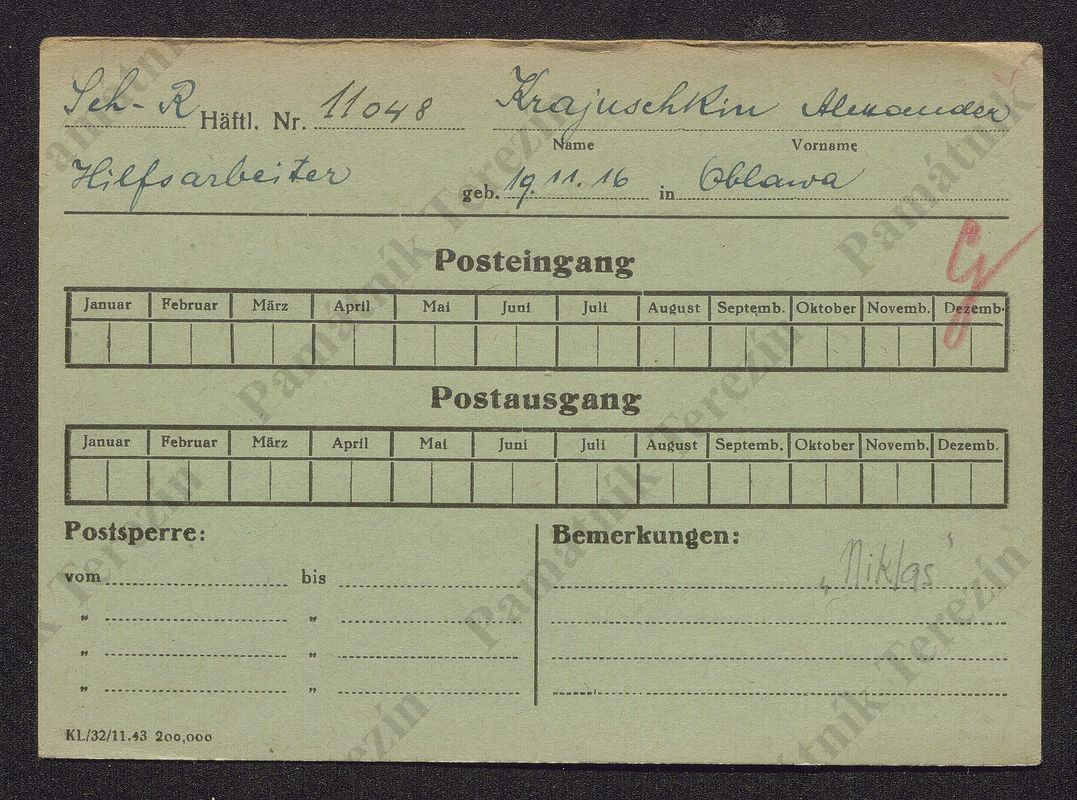 Sch-R Häftl. Nr. 11048 Krajuschkin Alexander
Name Vorname
Hilfsarbeiter geb. 19.11.16 in Oblawa
G
Posteingang
Januar Februar März April Mai Juni Juli August Septemb. Oktober Novemb. Dezemb.
Postausgang
Januar Februar März April Mai Juni Juli August Septemb. Oktober Novemb. Dezemb.
Postsperre: Bemerkungen:
vom bis „Niklas"
" "
" "
" "
KL/32/11.43 200,000
Památník Terezín